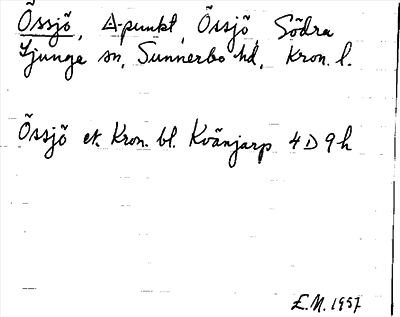 Össjö, △-punkt, Össjö, Södra
Ljunga sn, Sunnerbo hd, Kron. l.
Össjö ek. Kron. bl. Kvänjarp 4 D 9 h
E.M. 1957